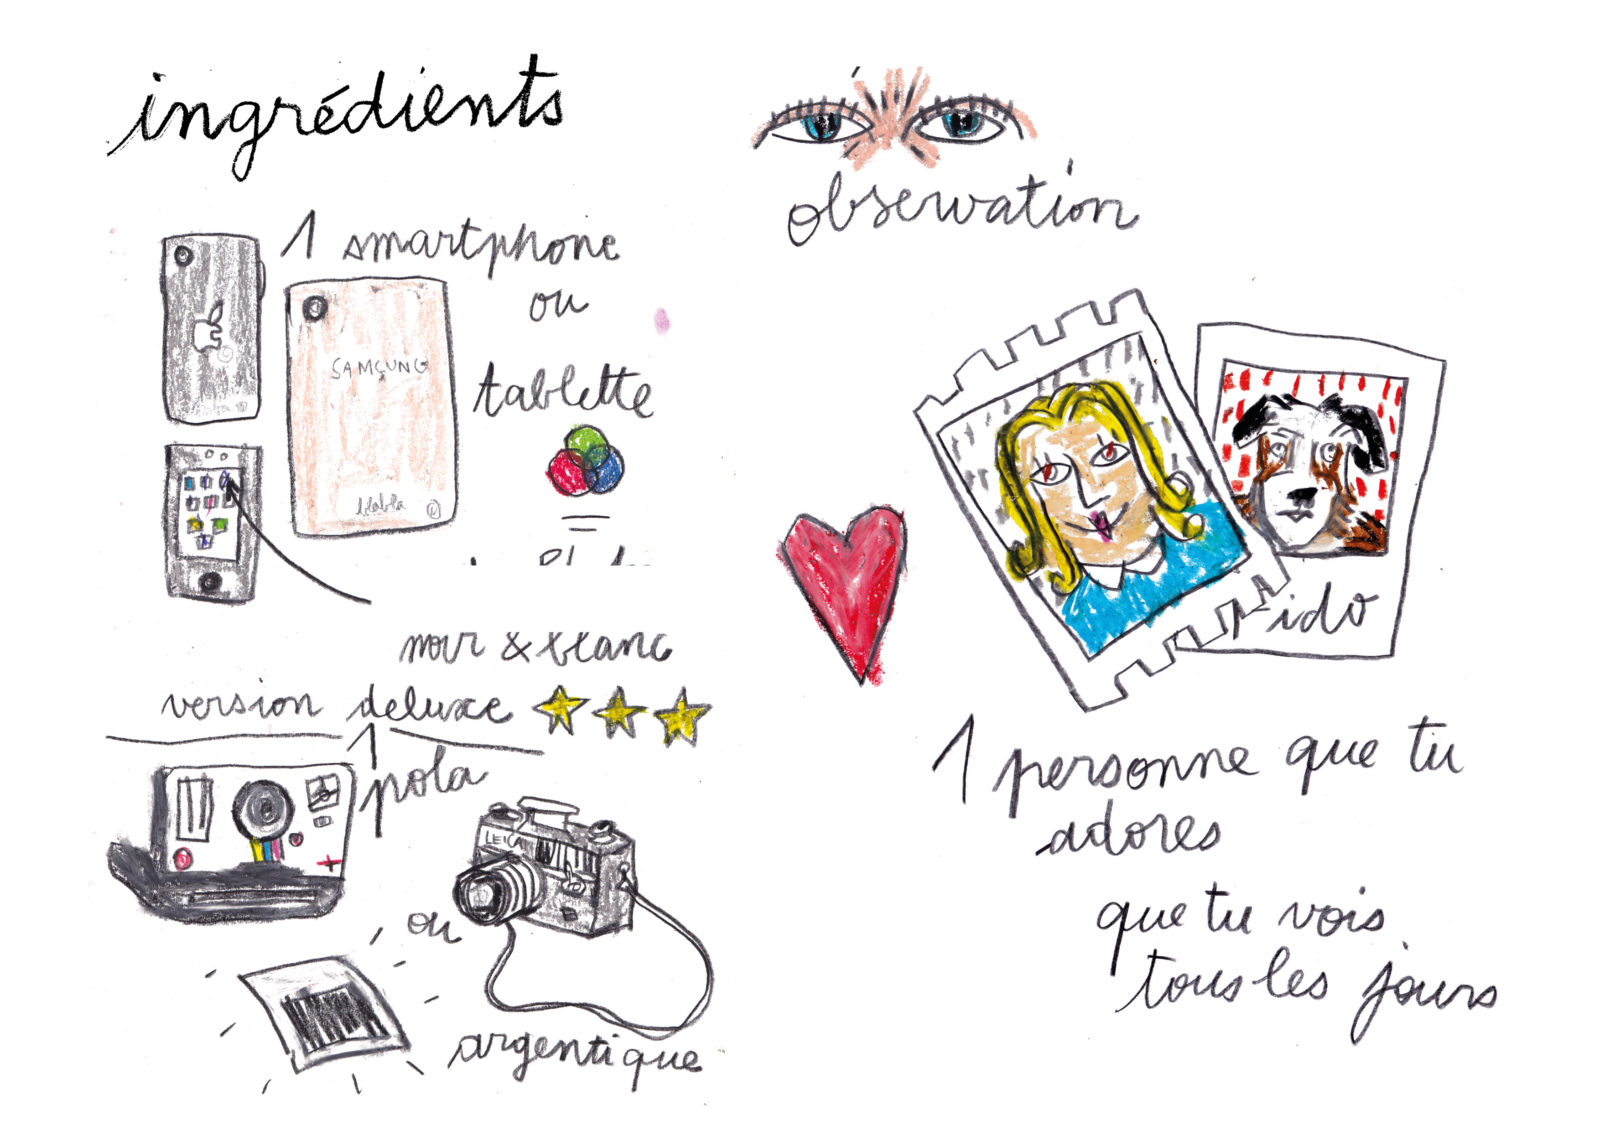 ingrédients
1 smartphone
ou
tablette
SAMSUNG
blabla
noir & blanc
version deluxe
1
pola
LEICA
ou
argentique
observation
Fido
1 personne que tu
adores
que tu vois
tous les jours